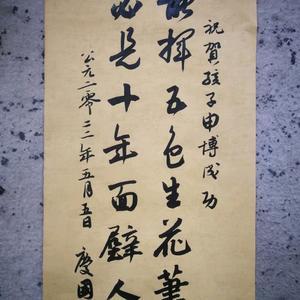 祝賀孩子申博成功
揮五色生花筆
必是十年面壁人
公元二零二二年五月五日
慶國